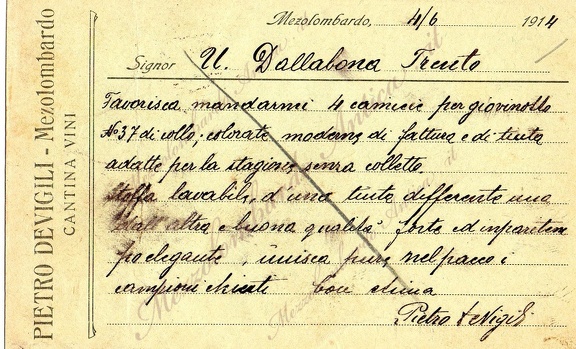 PIETRO DEVIGILI - Mezolombardo
CANTINA VINI
Mezolombardo, 4/6 1914
Signor U. Dallabona Trento
Favorisca mandarmi 4 camicie per giovinotto
No 37 di collo, colorate moderne di fattura e di tinta
adatte per la stagione, senza colletto.
Stoffa lavabile, d'una tinta differente una
dall'altra e buona qualità forte ed in parentem
po elegante, unisca pure nel pacco i
campioni chiesti Con stima
Pietro DeVigili